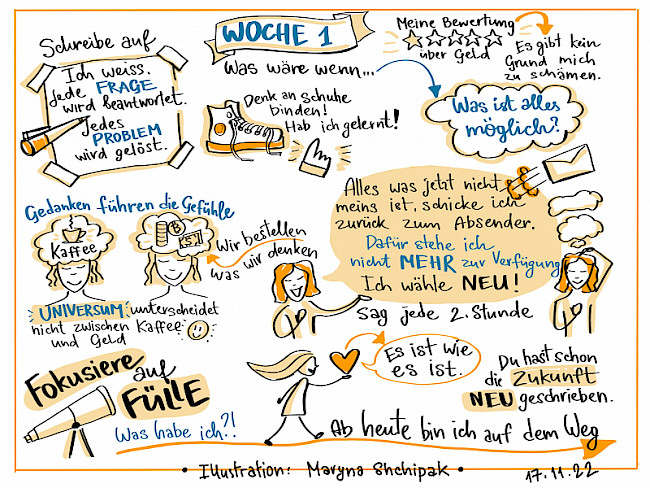 WOCHE 1
Was wäre wenn...
Meine Bewertung
über Geld
Es gibt kein
Grund mich
zu schämen.
Was ist alles
möglich?
Schreibe auf
Ich weiss.
Jede FRAGE
wird beantwortet.
Jedes
PROBLEM
wird gelöst.
Denk an Schuhe
binden!
Hab ich gelernt!
Alles was jetzt nicht
meins ist, schicke ich
zurück zum Absender.
Dafür stehe ich
nicht MEHR zur Verfügung
Ich wähle NEU!
Sag jede 2. Stunde
Gedanken führen die Gefühle
Kaffee
Wir bestellen
was wir denken
UNIVERSUM unterscheidet
nicht zwischen Kaffee
und Geld
Fokusiere auf
FÜLLE
Was habe ich?!
Es ist wie
es ist.
Du hast schon
die Zukunft
NEU geschrieben.
Ab heute bin ich auf dem Weg
• Illustration: Maryna Shchipak •
17.11.22